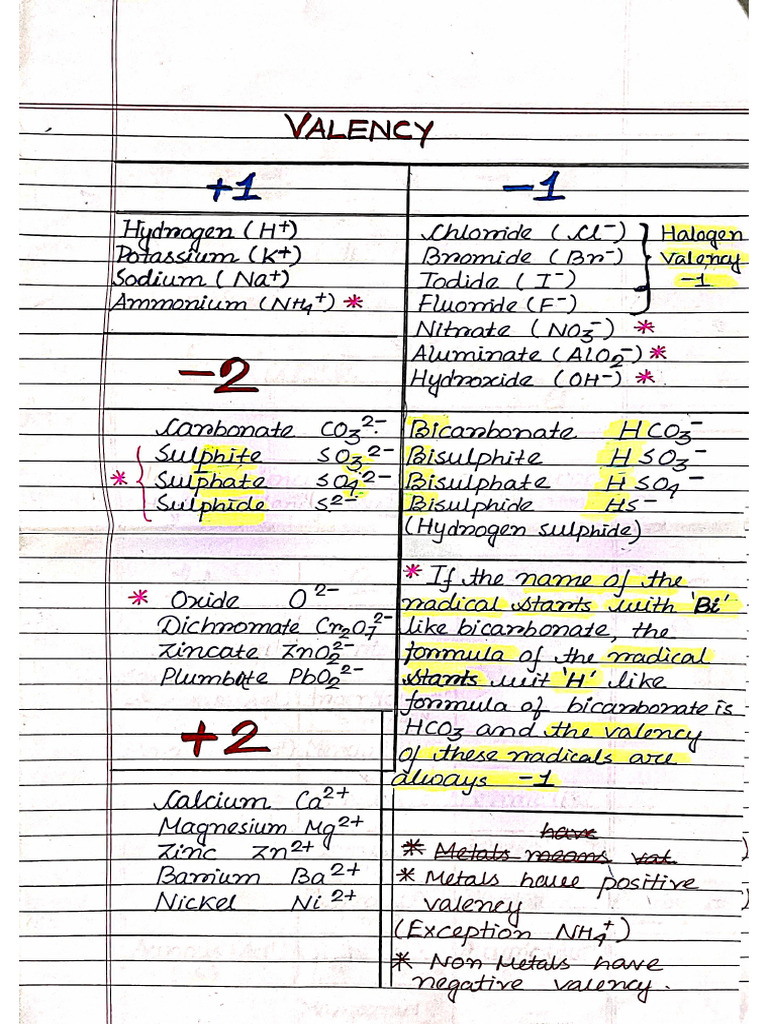 VALENCY
+1
Hydrogen (H⁺)
Potassium (K⁺)
Sodium (Na⁺)
Ammonium (NH₄⁺) *
-1
Chloride (Cl⁻)
Bromide (Br⁻)
Iodide (I⁻)
Fluoride (F⁻)
Halogen
valency
-1
Nitrate (NO₃⁻) *
Aluminate (AlO₂⁻) *
Hydroxide (OH⁻) *
-2
Carbonate CO₃²⁻
Sulphite SO₃²⁻
* Sulphate SO₄²⁻
Sulphide S²⁻
* Oxide O²⁻
Dichromate Cr₂O₇²⁻
Zincate ZnO₂²⁻
Plumbite PbO₂²⁻
Bicarbonate HCO₃⁻
Bisulphite HSO₃⁻
Bisulphate HSO₄⁻
Bisulphide HS⁻
(Hydrogen sulphide)
* If the name of the
radical starts with 'Bi'
like bicarbonate, the
formula of the radical
starts wit 'H' like
formula of bicarbonate is
HCO₃ and the valency
of these radicals are
always -1
+2
Calcium Ca²⁺
Magnesium Mg²⁺
Zinc Zn²⁺
Barium Ba²⁺
Nickel Ni²⁺
have
* Metals means val
* Metals have positive
valency
(Exception NH₄⁺)
* Non Metals have
negative valency.